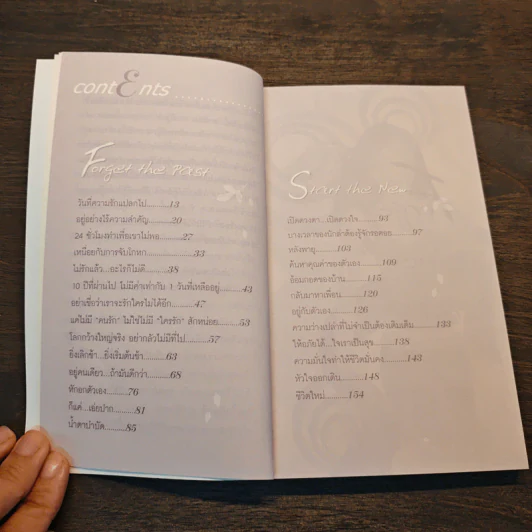 contEnts
Forget the Past
วันที่ความรักแปลกไป..........13
อยู่อย่างไร้ความสำคัญ..........20
24 ชั่วโมงทำเพื่อเขาไม่พอ..........27
เหนื่อยกับการจับโกหก..........33
ไม่รักแล้ว...อะไรก็ไม่ดี..........38
10 ปีที่ผ่านไป ไม่มีค่าเท่ากับ 1 วันที่เหลืออยู่..........43
อย่าเชื่อว่าเราจะรักใครไม่ได้อีก..........47
แค่ไม่มี "คนรัก" ไม่ใช่ไม่มี "ใครรัก" สักหน่อย..........53
โลกกว้างใหญ่จริง อย่ากลัวไม่มีที่ไป..........57
ยิ่งเลิกช้า...ยิ่งเริ่มต้นช้า..........63
อยู่คนเดียว...ถ้ามันดีกว่า..........68
ทักยกตัวเอง..........76
ก็แค่...เอ่ยปาก..........81
น้ำตาบำบัด..........85
Start the New
เปิดดวงตา...เปิดดวงใจ..........93
บางเวลาของนักล่าต้องรู้จักรอคอย..........97
หลังพายุ..........103
ค้นหาคุณค่าของตัวเอง..........109
อ้อมกอดของบ้าน..........115
กลับมาหาเพื่อน..........120
อยู่กับตัวเอง..........126
ความว่างเปล่าที่ไม่จำเป็นต้องเติมเต็ม..........133
ให้อภัยได้...ใจเราเป็นสุข..........138
ความมั่นใจทำให้ชีวิตมั่นคง..........143
หัวใจออกเดิน..........148
ชีวิตใหม่..........154